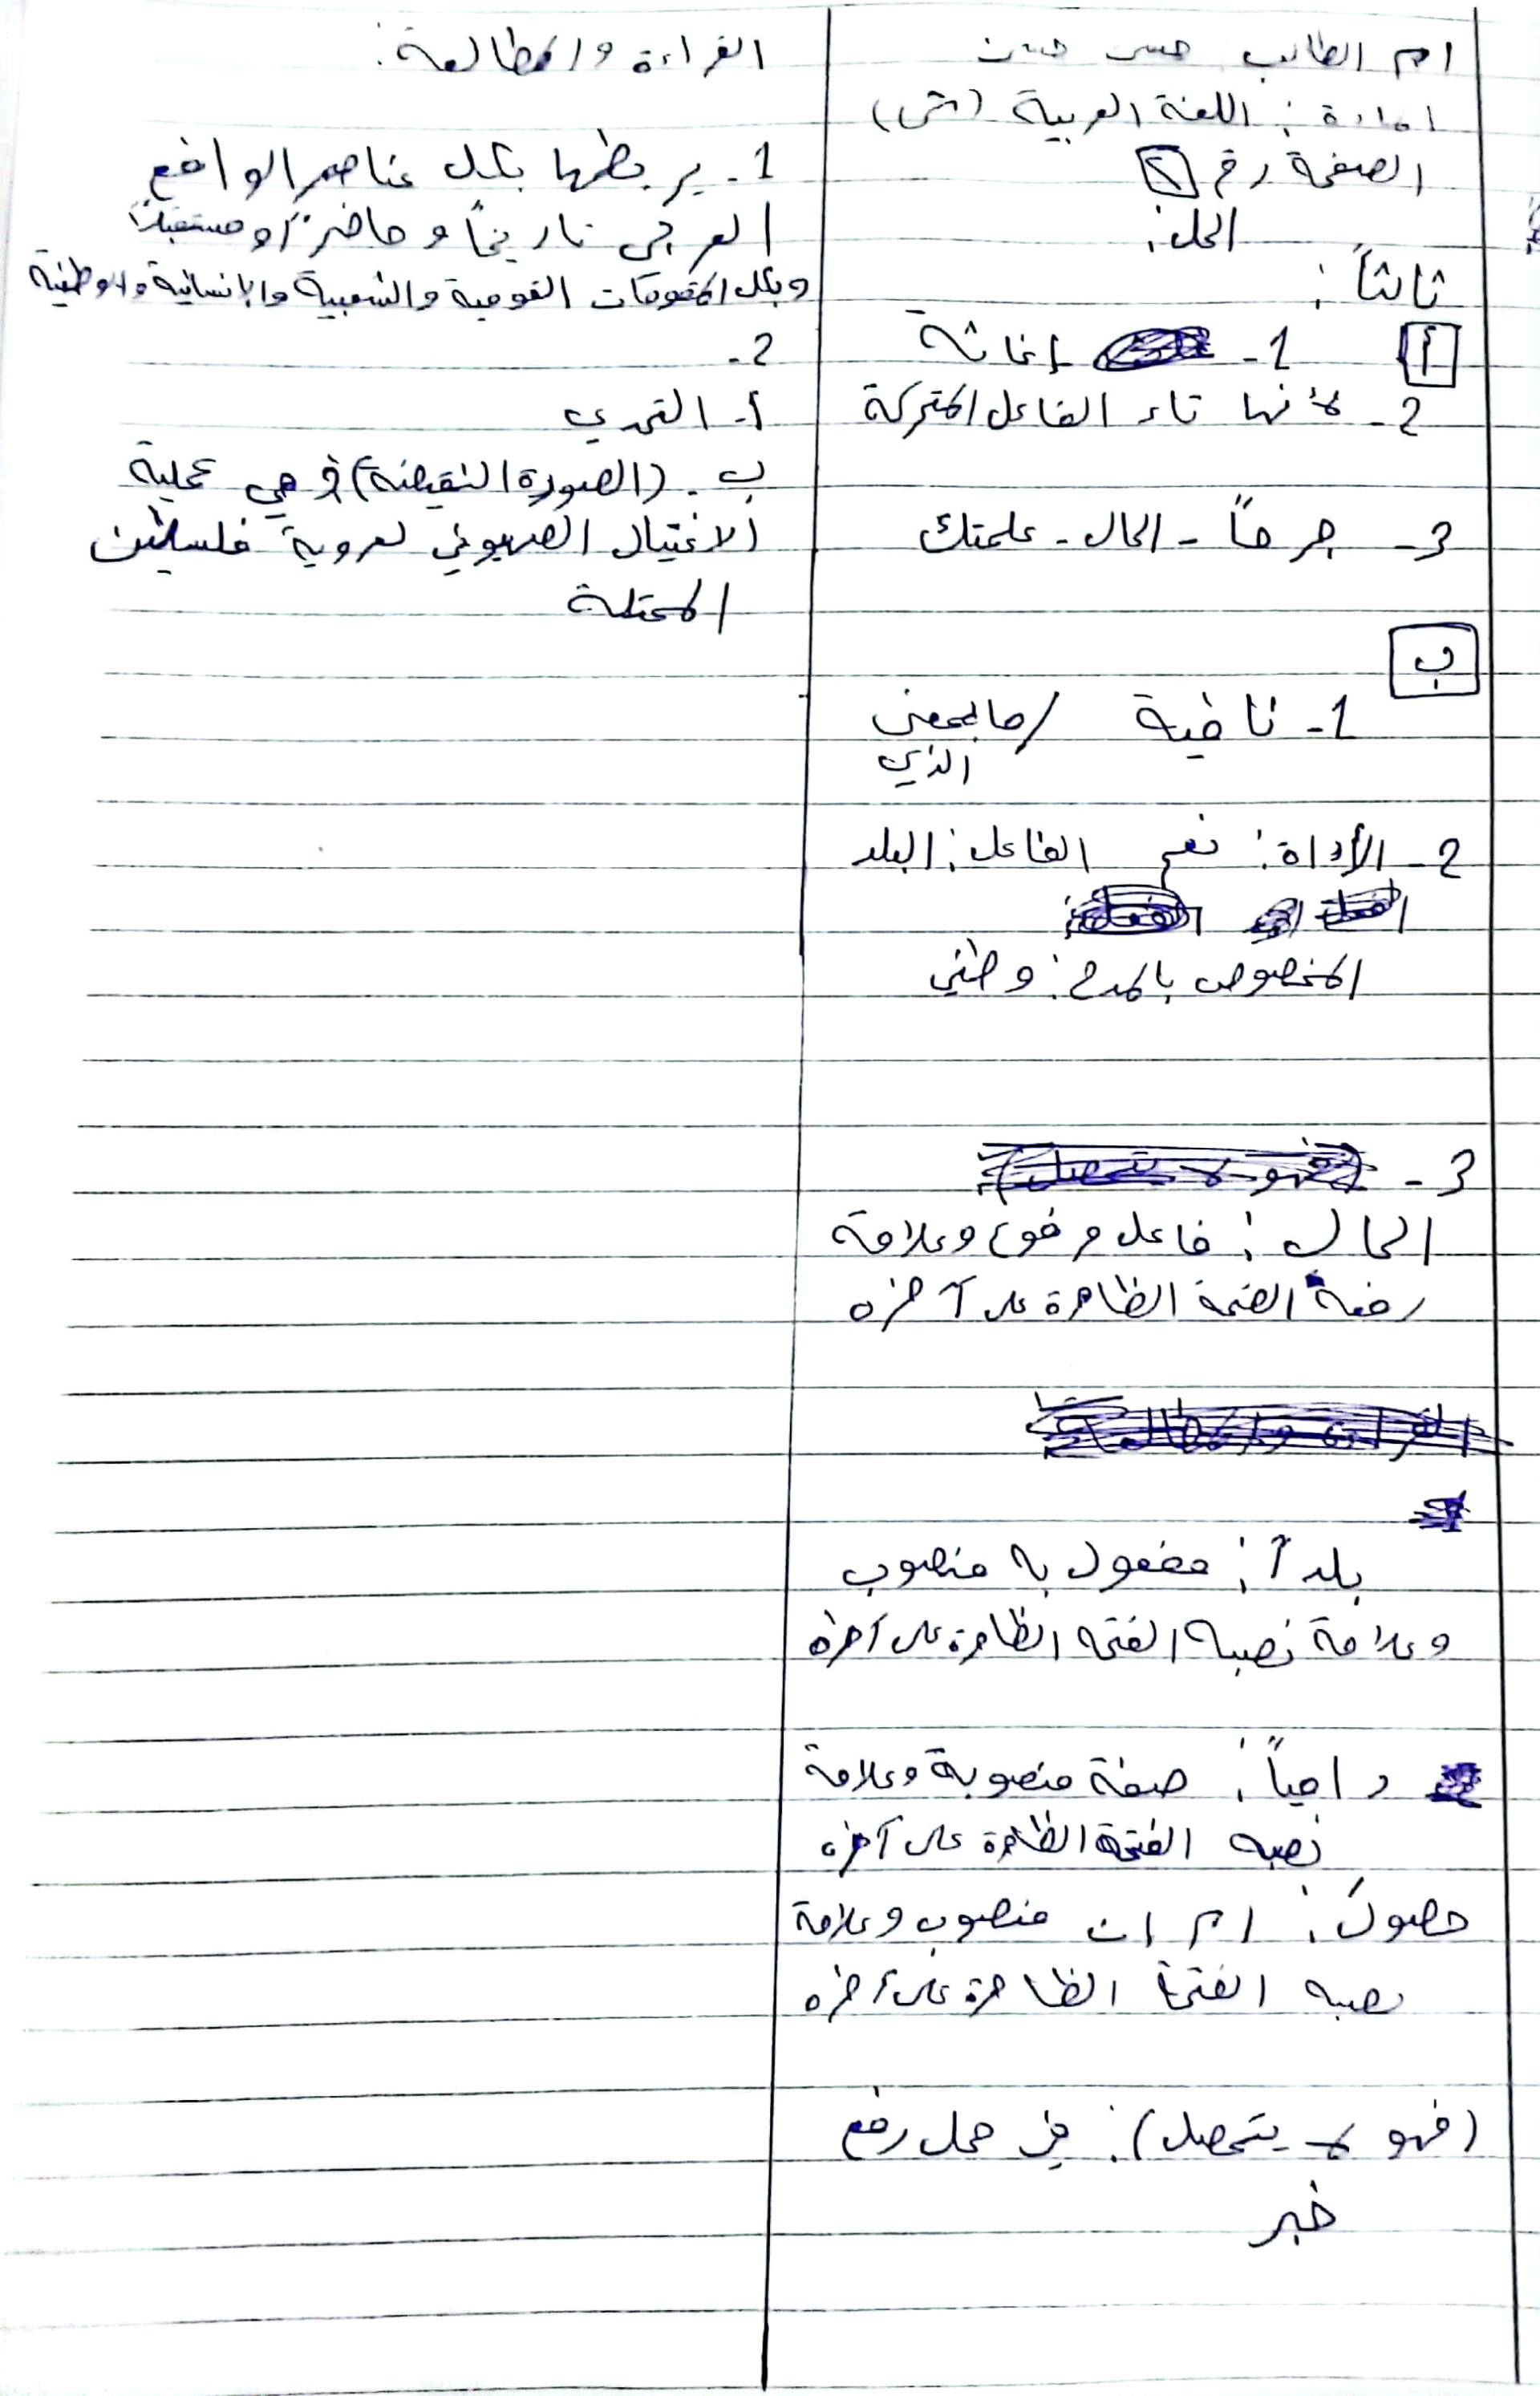 اسم الطالب حسن حسن
المادة : اللغة العربية (ش)
الصفحة رقم 2
الحل:
ثالثاً :
أ
1- إغاثة
2- لأنها تاء الفاعل المتحركة
3- جرحاً - الحال - علمتك
ب
1- نافية / ما بمعنى
الذي
2- الأداة: نعم الفاعل: البلد
المخصوص بالمدح: وطني
3- (فهو لا يتحصل)
الحال : فاعل مرفوع وعلامة
رفعه الضمة الظاهرة على آخره
القراءة والمطالعة
بلداً : مفعول به منصوب
وعلامة نصبه الفتحة الظاهرة على آخره
: صفة منصوبة وعلامة
نصبه الفتحة الظاهرة على آخره
: اسم ان منصوب وعلامة
نصبه الفتحة الظاهرة على آخره
(فهو لا يتحصل): في محل رفع
خبر
القراءة والمطالعة:
1- يربطها بكل عناصر الواقع
العربي تاريخاً و حاضراً و مستقبلاً
وبكل المقومات القومية والشعبية والإنسانية والوطنية
2-
أ- التحدي
ب- (الصورة النقيضة) و هي عملية
الاغتيال الصهيوني لعروبة فلسطين
المحتلة